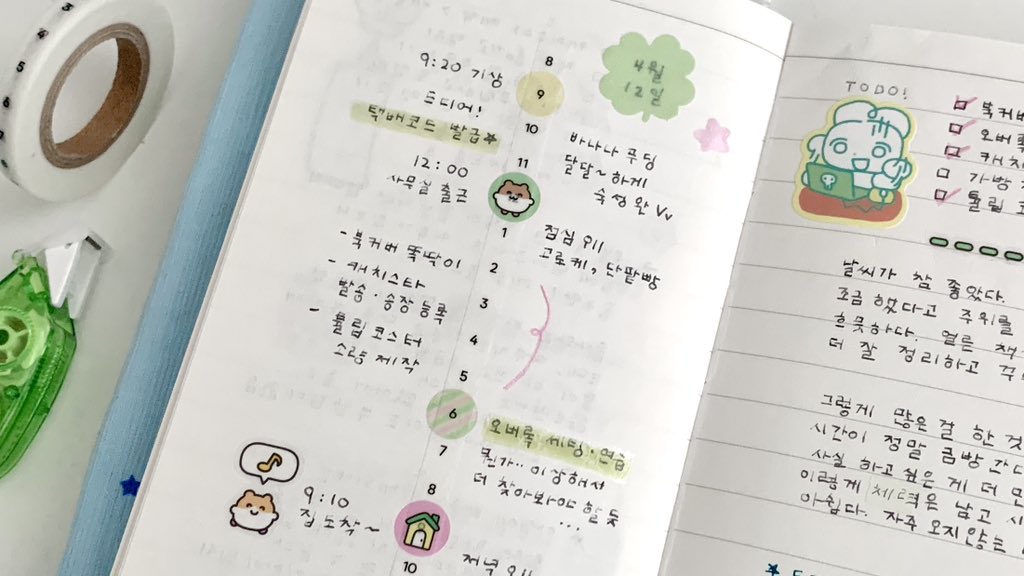 4월
12일
8
9
10
11
1
2
3
4
5
6
7
8
10
9:20 기상
드디어!
택배코드 발급
12:00
사무실 출근
- 북커버 뚝딱이
- 캐치스타
발송·송장등록
- 톨립코스터
소량 제작
9:10
집도착~
바나나 푸딩
달달~하게
숙성완 Vv
점심 뭐
고로케, 단팥빵
오버록 세팅·연습
뭔가.. 이상해서
더 찾아봐야 할듯
...
저녁
TODO!
북커버
오버록
캐치
가방
톨립 코
날씨가 참 좋았다.
조금 했다고 주위를
흐뭇하다. 얼른 책
더 잘 정리하고 꾸
그렇게 많은 걸 한 것
시간이 정말 금방 간다
사실 하고 싶은 게 더 많
이렇게 체력은 남고 시
아쉽다. 자주 오지않는
3
5
6